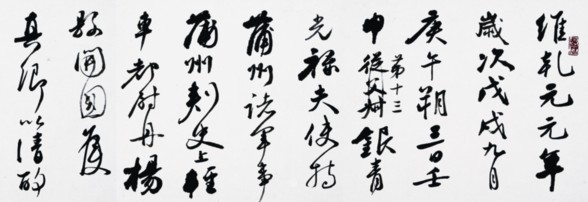 維乾元元年
歲次戊戌九月
庚午朔三日壬
申第十三從父叔銀青
光祿夫使持
蒲州諸軍事
蒲州刺史上輕
車都尉丹楊
縣開國侯
真卿以清酌